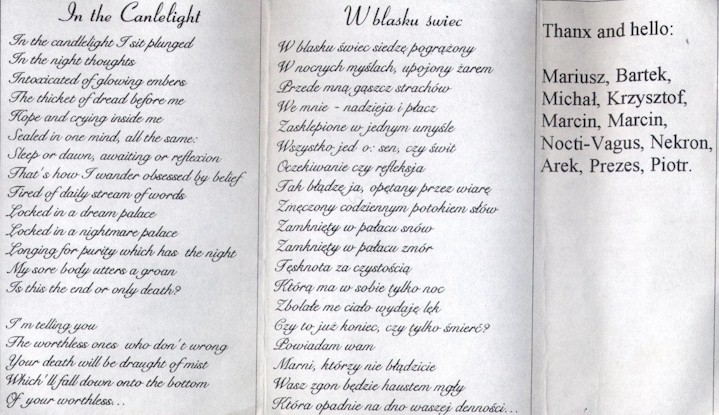 In the Canlelight
In the candlelight I sit plunged
In the night thoughts
Intoxicated of glowing embers
The thicket of dread before me
Hope and crying inside me
Sealed in one mind, all the same:
Sleep or dawn, awaiting or reflexion
That's how I wander obsessed by belief
Tired of daily stream of words
Locked in a dream palace
Locked in a nightmare palace
Longing for purity which has the night
My sore body utters a groan
Is this the end or only death?
I'm telling you
The worthless ones who don't wrong
Your death will be draught of mist
Which'll fall down onto the bottom
Of your worthless...
W blasku świec
W blasku świec siedzę pogrążony
W nocnych myślach, upojony żarem
Przede mną gąszcz strachów
We mnie - nadzieja i płacz
Zasklepione w jednym umyśle
Wszystko jed o: sen, czy świt
Oczekiwanie czy refleksja
Tak błądzę ja, opętany przez wiarę
Zmęczony codziennym potokiem słów
Zamknięty w pałacu snów
Zamknięty w pałacu zmór
Tęsknota za czystością
Którą ma w sobie tylko noc
Zbolałe me ciało wydaję lęk
Czy to już koniec, czy tylko śmierć?
Powiadam wam
Marni, którzy nie błądzicie
Wasz zgon będzie haustem mgły
Która opadnie na dno waszej denności...
Thanx and hello:
Mariusz, Bartek,
Michał, Krzysztof,
Marcin, Marcin,
Nocti-Vagus, Nekron,
Arek, Prezes, Piotr.